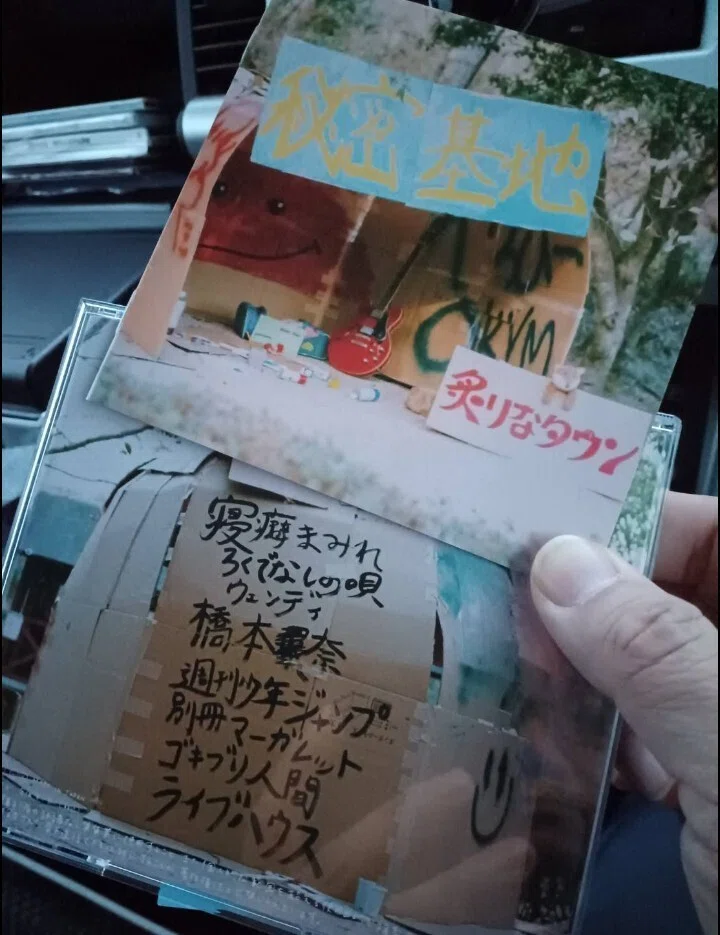 秘密基地
OKYM
炙りなタウン
寝癖まみれ
ろくでなしの唄
ウェンディ
橋本環奈
週刊少年ジャンプ
別冊マーガレット
ゴキブリ人間
ライブハウス